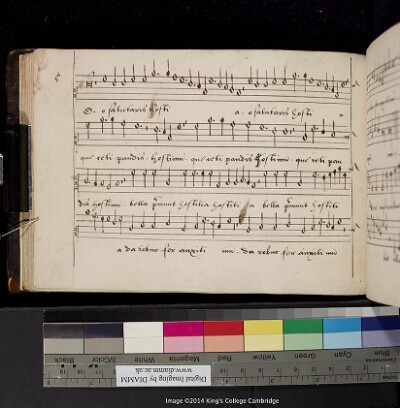 O salutaris hosti a. o salutaris hosti a
que celi pandis. hostium. que celi pandis hostium. que celi pan
dis hostium. bella premunt hostilia hostili a bella premunt hostili
a da robur fer auxili um. da robur fer auxili um
Digital Imaging by DIAMM
www.diamm.ac.uk
Black
3/Color
White
Magenta
Red
Yellow
Green
Cyan
Blue
Image ©2014 King's College Cambridge